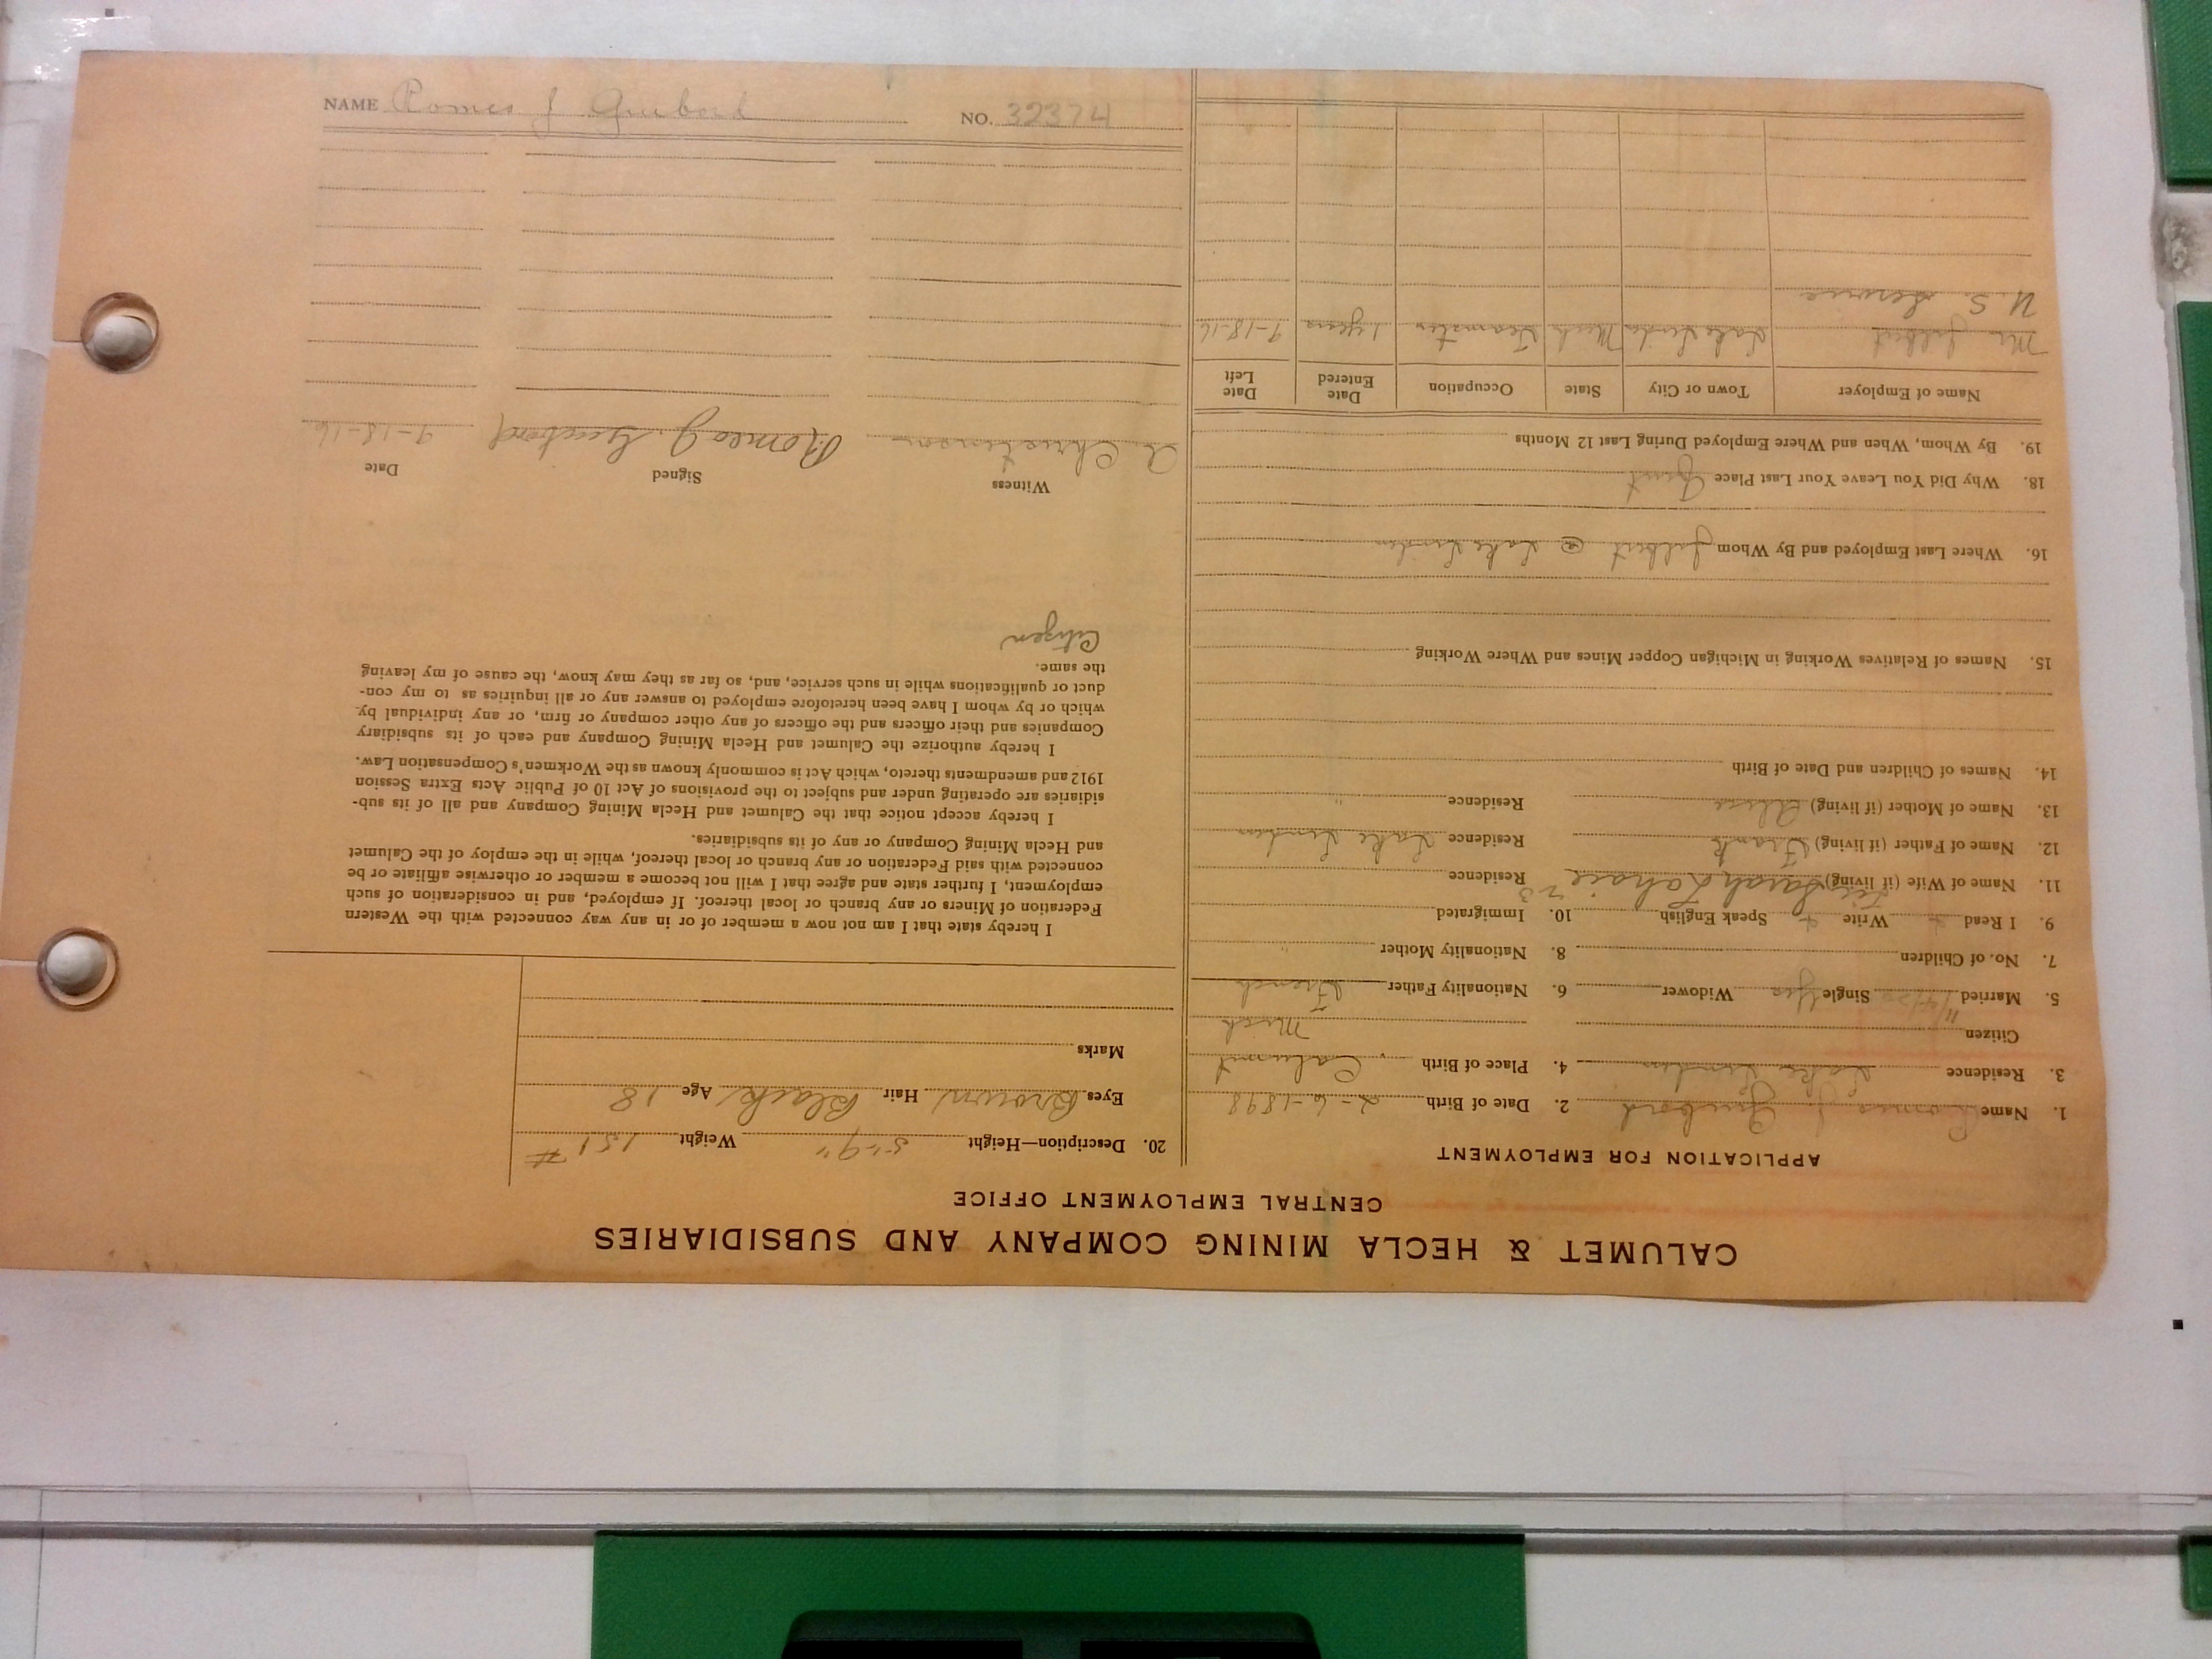 CALUMET & HECLA MINING COMPANY AND SUBSIDIARIES
CENTRAL EMPLOYMENT OFFICE
APPLICATION FOR EMPLOYMENT
1. Name Romeo J. Guibord 2. Date of Birth 2-6-1898
3. Residence Lake Linden 4. Place of Birth Calumet
Citizen Mich
5. Married Single Yes Widower 6. Nationality Father French
7. No. of Children 8. Nationality Mother "
9. I Read Write Speak English 10. Immigrated
11. Name of Wife (if living) Sarah Residence
12. Name of Father (if living) Frank Residence Lake Linden
13. Name of Mother (if living) Residence "
14. Names of Children and Date of Birth
15. Names of Relatives Working in Michigan Copper Mines and Where Working
16. Where Last Employed and By Whom Gilbert @ Lake Linden
18. Why Did You Leave Your Last Place Quit
19. By Whom, When and Where Employed During Last 12 Months
Name of Employer Town or City State Occupation Date Entered Date Left
Mr Gilbert Lake Linden Mich Teamster 1 year 9-18-16
U. S. Service
20. Description—Height 5-9" Weight 151 #
Eyes Brown Hair Black Age 18
Marks
I hereby state that I am not now a member of or in any way connected with the Western
Federation of Miners or any branch or local thereof. If employed, and in consideration of such
employment, I further state and agree that I will not become a member or otherwise affiliate or be
connected with said Federation or any branch or local thereof, while in the employ of the Calumet
and Hecla Mining Company or any of its subsidiaries.
I hereby accept notice that the Calumet and Hecla Mining Company and all of its sub-
sidiaries are operating under and subject to the provisions of Act 10 of Public Acts Extra Session
1912 and amendments thereto, which Act is commonly known as the Workmen's Compensation Law.
I hereby authorize the Calumet and Hecla Mining Company and each of its subsidiary
Companies and their officers and the officers of any other company or firm, or any individual by
which or by whom I have been heretofore employed to answer any or all inquiries as to my con-
duct or qualifications while in such service, and, so far as they may know, the cause of my leaving
the same.
Citizen
Witness Signed Date
A. Christenson Romeo J. Guibord 9-18-16
NAME Romeo J Guibord NO. 32374